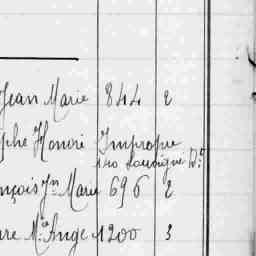 Jean Marie 844 2
phe Honoré Impropre
nçois Jn Marie 696 2
re Mie Ange 1200 3